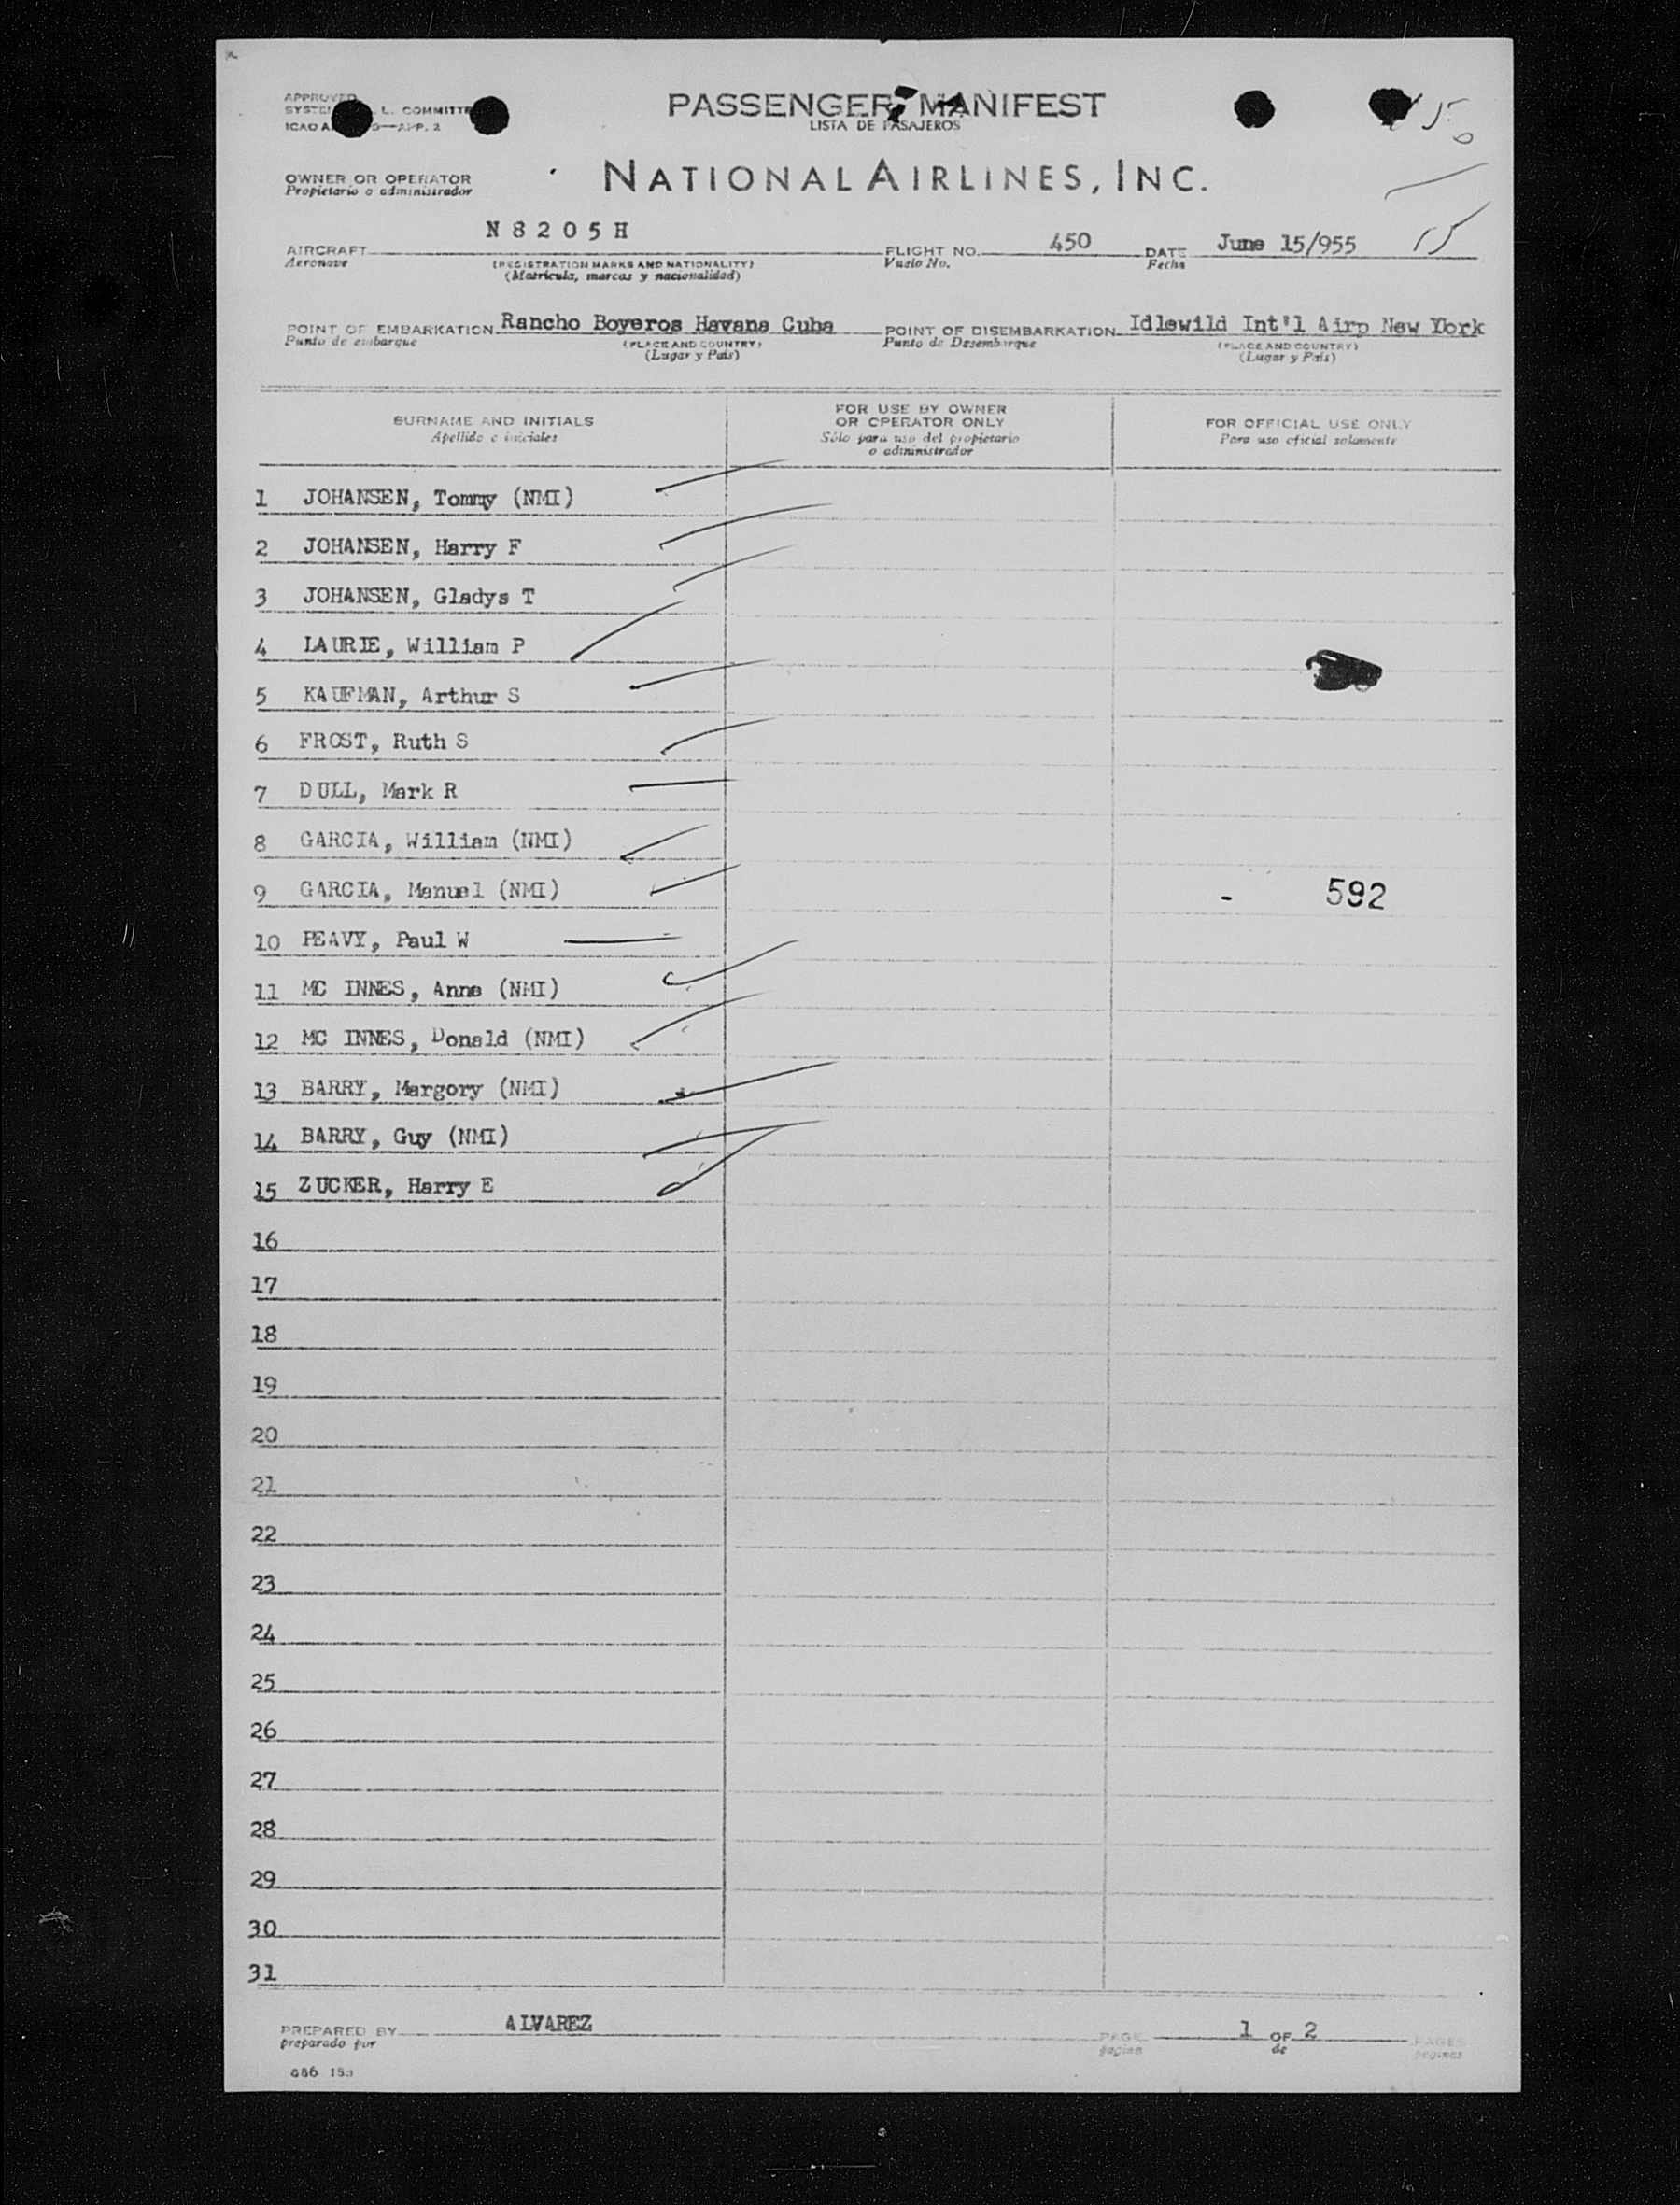 APPROVED
L. COMMITTE
ICAO APP. 2
PASSENGER MANIFEST
LISTA DE PASAJEROS
15
0
OWNER OR OPERATOR
Propietario o administrador
NATIONAL AIRLINES, INC.
AIRCRAFT N 8 2 0 5 H FLIGHT NO. 450 DATE June 15/955 15
Aeronave (REGISTRATION MARKS AND NATIONALITY) Vuelo No. Fecha
(Matricula, marcas y nacionalidad)
POINT OF EMBARKATION Rancho Boyeros Havana Cuba POINT OF DISEMBARKATION Idlewild Int'l Airp New York
Punto de embarque (PLACE AND COUNTRY) Punto de Desembarque (PLACE AND COUNTRY)
(Lugar y País) (Lugar y País)
SURNAME AND INITIALS
Apellido e iniciales
FOR USE BY OWNER
OR OPERATOR ONLY
Sólo para uso del propietario
o administrador
FOR OFFICIAL USE ONLY
Para uso oficial solamente
1 JOHANSEN, Tommy (NMI)
2 JOHANSEN, Harry F
3 JOHANSEN, Gladys T
4 LAURIE, William P
5 KAUFMAN, Arthur S
6 FROST, Ruth S
7 DULL, Mark R
8 GARCIA, William (NMI)
9 GARCIA, Manuel (NMI) - 592
10 PEAVY, Paul W
11 MC INNES, Anne (NMI)
12 MC INNES, Donald (NMI)
13 BARRY, Margory (NMI)
14 BARRY, Guy (NMI)
15 ZUCKER, Harry E
16
17
18
19
20
21
22
23
24
25
26
27
28
29
30
31
PREPARED BY ALVAREZ PAGE 1 OF 2 PAGES
preparado por pagina de paginas